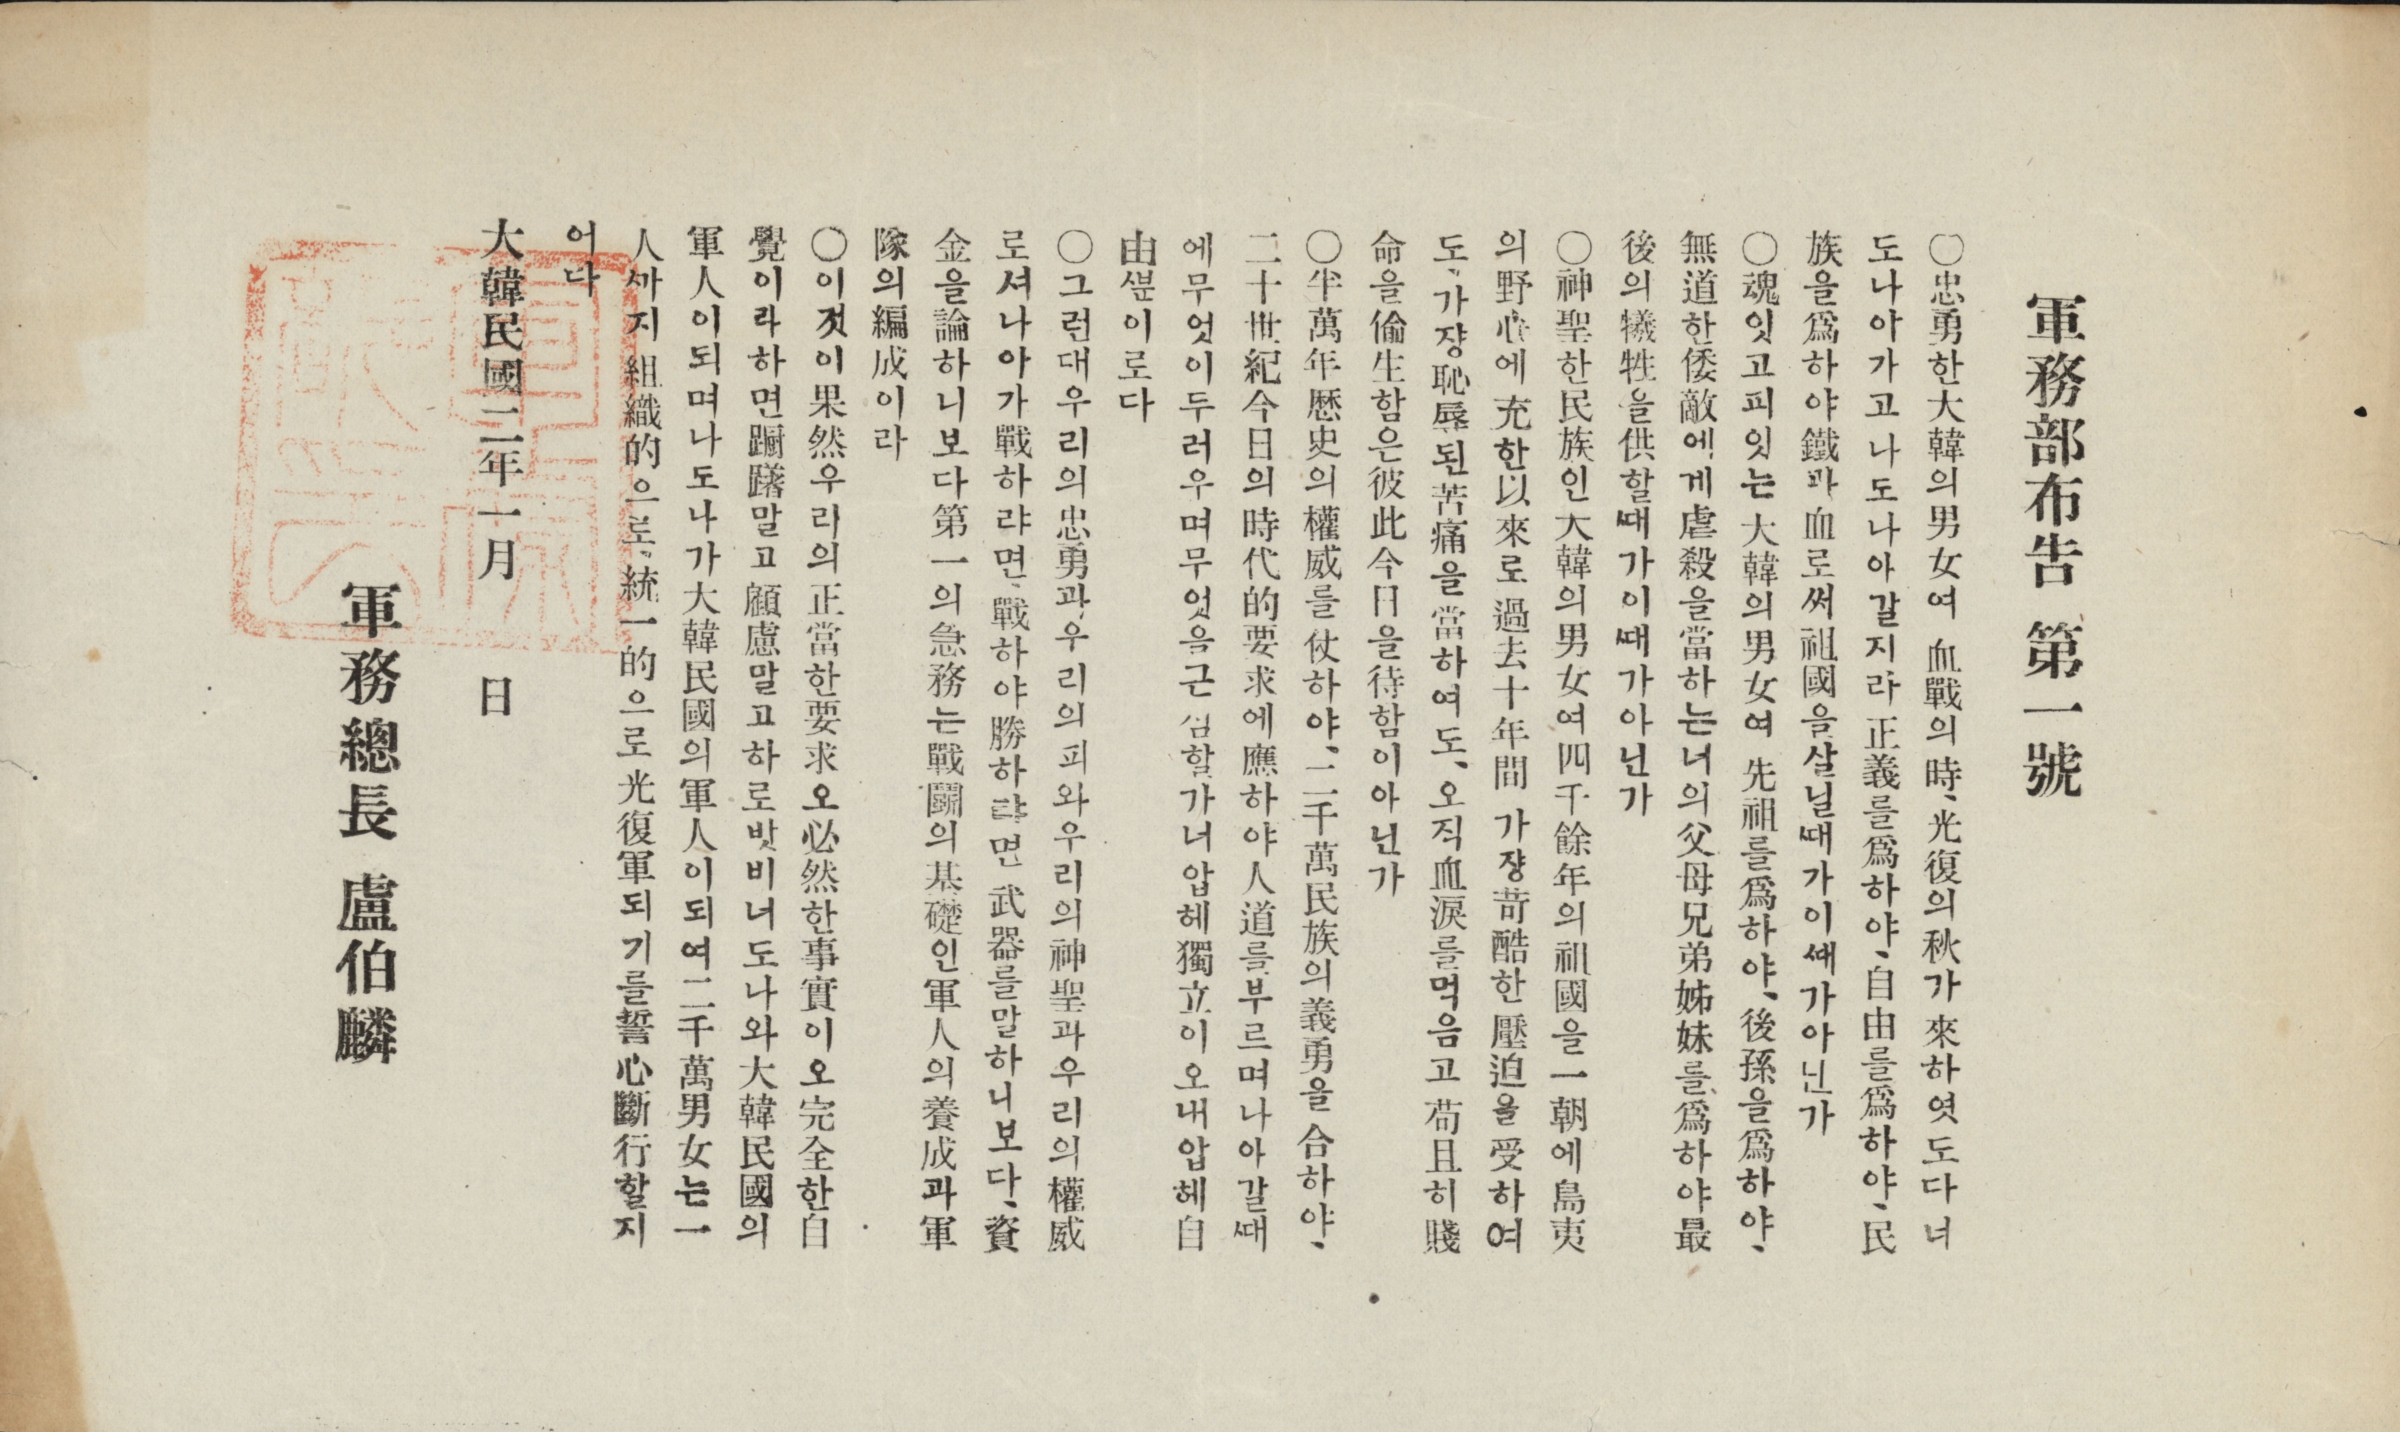 軍務部布告 第一號
〇忠勇한大韓의男女여 血戰의時、光復의秋가來하엿도다너
도나아가고나도나아갈지라 正義를爲하야、自由를爲하야、民
族을爲하야鐵과血로써祖國을살닐때가이쌔가아닌가
〇魂잇고피잇는大韓의男女여 先祖를爲하야、後孫을爲하야、
無道한倭敵에게虐殺을當하는너의父母兄弟姊妹를爲하야最
後의犧牲을供할때가이때가아닌가
〇神聖한民族인大韓의男女여四千餘年의祖國을一朝에島夷
의野心에充한以來로過去十年間 가쟝苛酷한壓迫을受하여
도、가쟝恥辱된苦痛을當하여도、오직血淚를먹음고苟且히賤
命을偸生함은彼此今日을待함이아닌가
〇半萬年歷史의權威를仗하야、二千萬民族의義勇을合하야、
二十世紀今日의時代的要求에應하야人道를부르며나아갈때
에무엇이두러우며무엇을근심할가너압헤獨立이오내압헤自
由뿐이로다
〇그런대우리의忠勇과우리의피와우리의神聖과우리의權威
로셔나아가戰하랴면、戰하야勝하랴면 武器를말하니보다、資
金을論하니보다第一의急務는戰鬪의基礎인軍人의養成과軍
隊의編成이라
〇이것이果然우리의正當한要求오必然한事實이오完全한自
覺이라하면躕躇말고顧慮말고하로밧비너도나와大韓民國의
軍人이되며나도나가大韓民國의軍人이되여二千萬男女는一
人까지組織的으로、統一的으로光復軍되기를誓心斷行할지
어다
大韓民國二年一月 日
軍務總長 盧伯麟